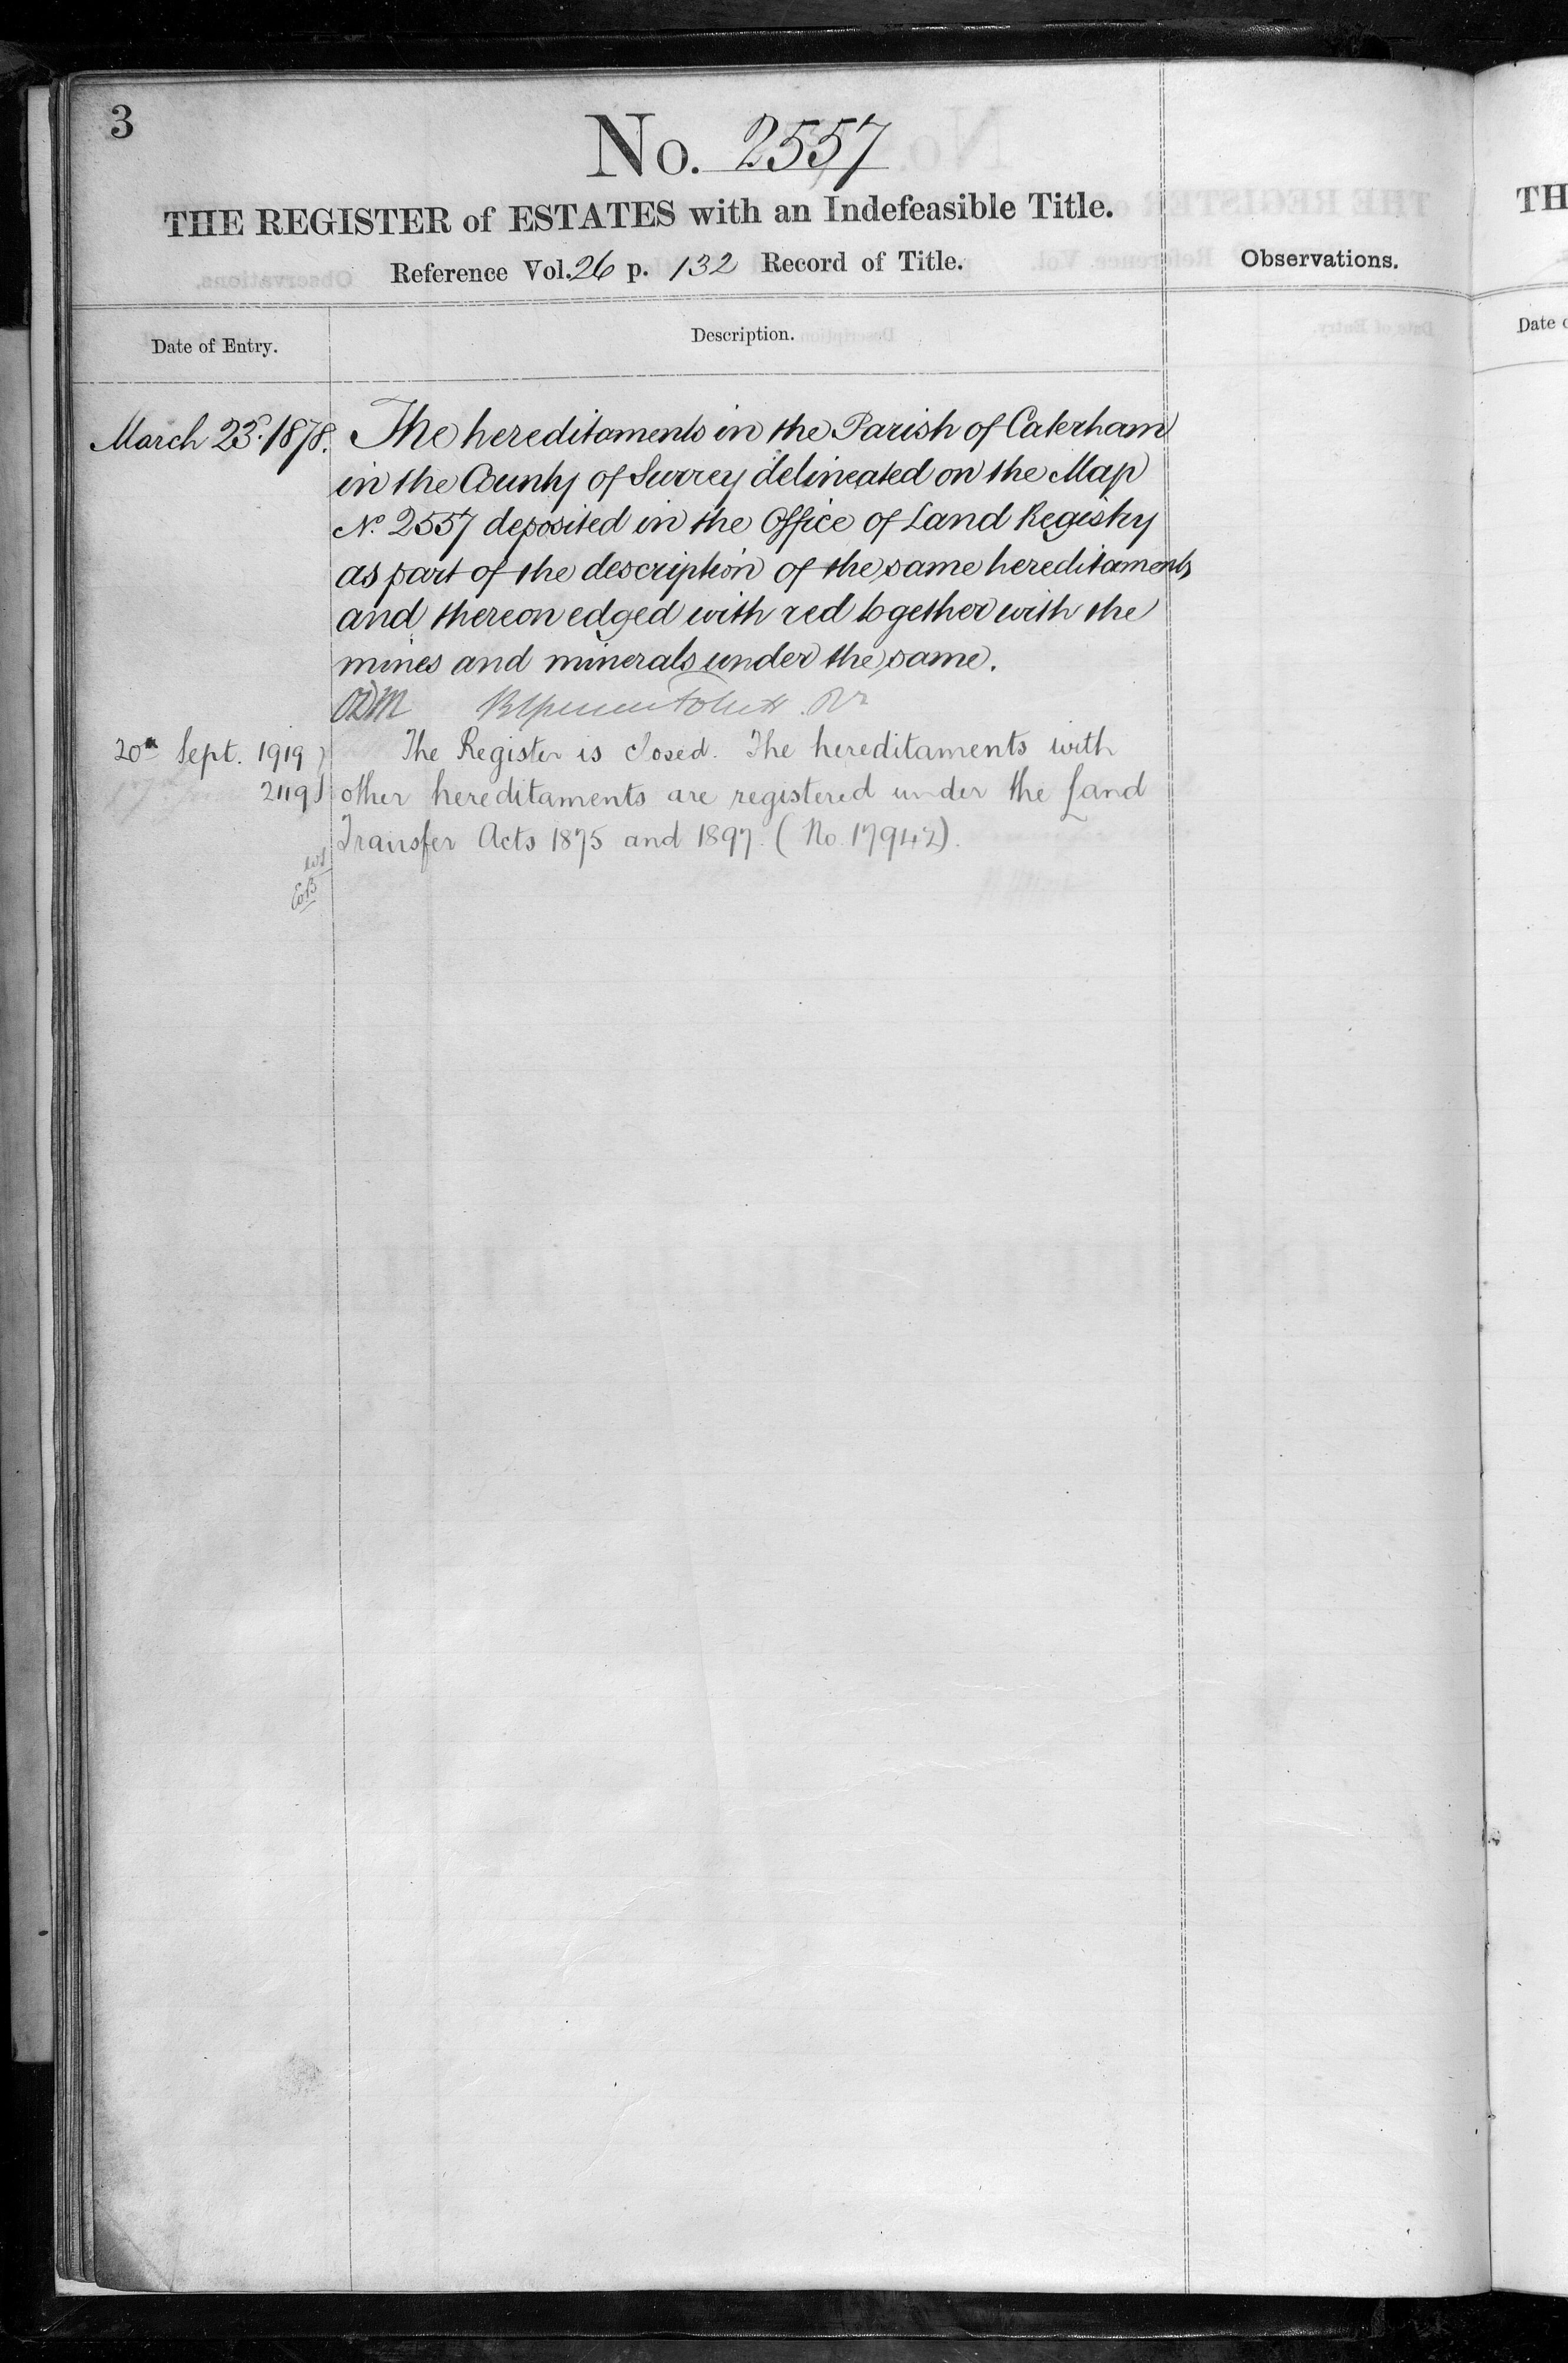 3
No. 2557
THE REGISTER of ESTATES with an Indefeasible Title.
Reference Vol. 26 p. 132 Record of Title.
Observations.
Date of Entry.
Description.
March 23d. 1878.
The hereditaments in the Parish of Caterham
in the County of Surrey delineated on the Map
No. 2557 deposited in the Office of Land Registry
as part of the description of the same hereditaments
and thereon edged with red together with the
mines and minerals under the same.
20th Sept. 1919
2119
The Register is closed. The hereditaments with
other hereditaments are registered under the Land
Transfer Acts 1875 and 1897. (No. 17942).
TH
Date o